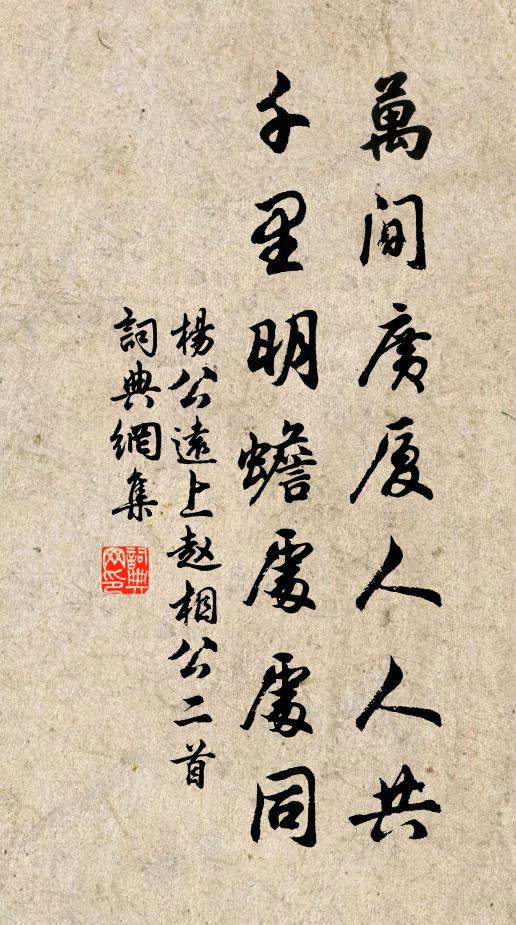 萬間廣厦人人共
千里明蟾處處同
楊公遠上赵相公二首
詞典網集
詞典网印